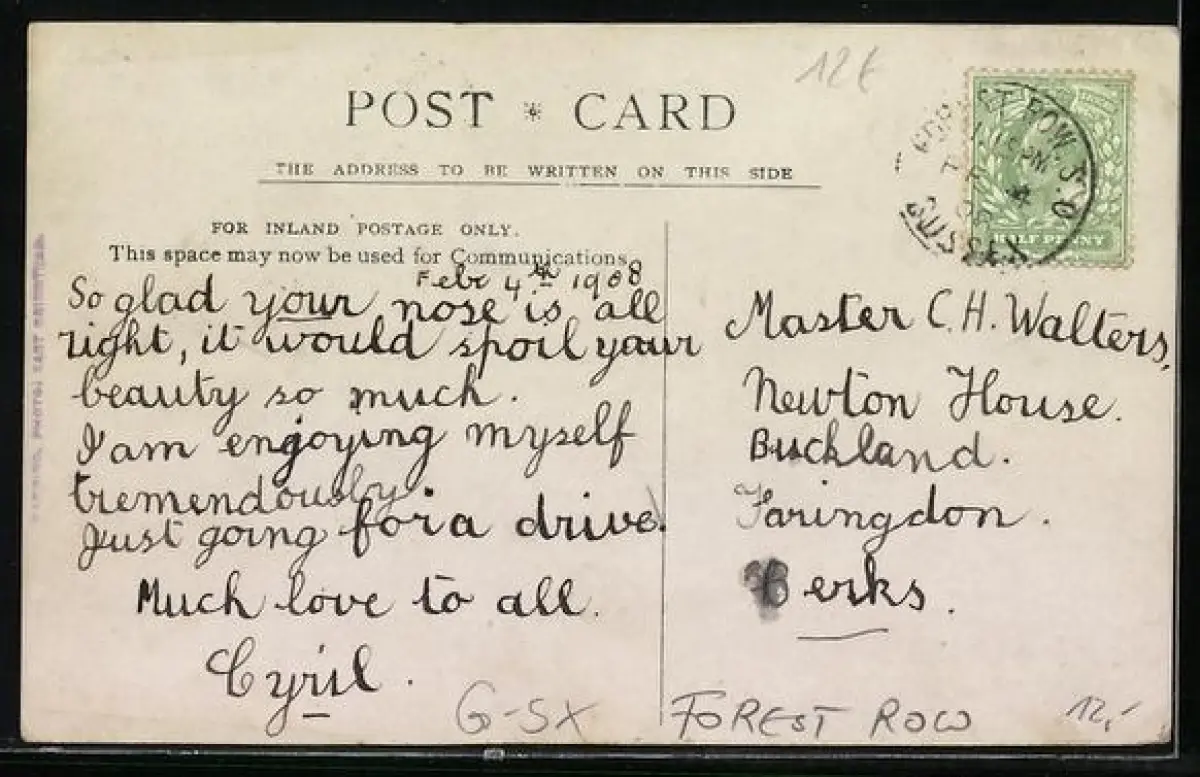 12€
POST * CARD
THE ADDRESS TO BE WRITTEN ON THIS SIDE
FOREST ROW. S.O
SUSSEX
HALF PENNY
FOR INLAND POSTAGE ONLY.
This space may now be used for Communications.
Febr 4th 1908
So glad your nose is all
right, it would spoil your
beauty so much.
I am enjoying myself
tremendously.
Just going for a drive.
Much love to all.
Cyril.
Master C. H. Walters,
Newton House.
Buckland.
Faringdon.
Berks.
G-SX
FOREST ROW
12,-